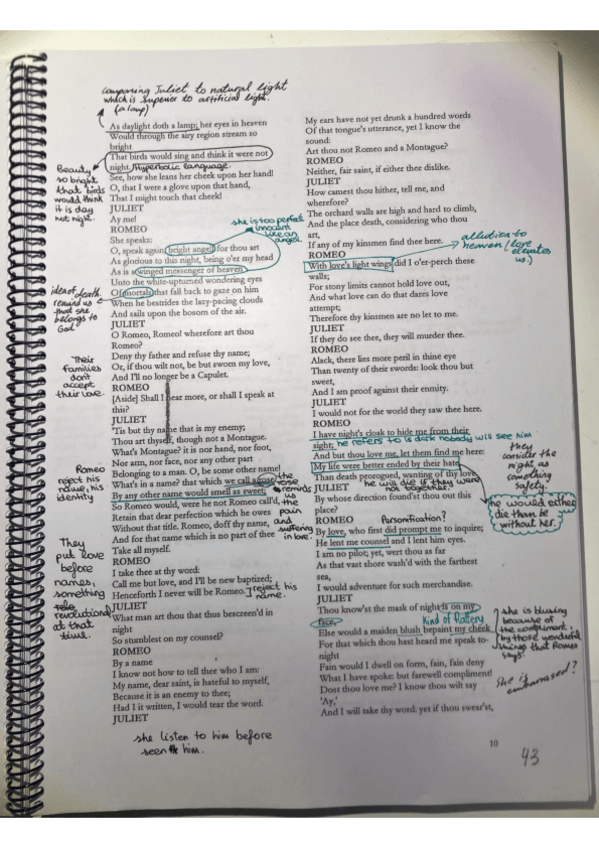 comparing Juliet to natural light
which is superior to artificial light.
(a lamp)
As daylight doth a lamp; her eyes in heaven
Would through the airy region stream so
bright
That birds would sing and think it were not
night. Hyperbolic language.
See, how she leans her cheek upon her hand!
O, that I were a glove upon that hand,
That I might touch that cheek!
JULIET
Ay me!
ROMEO
She speaks:
O, speak again, bright angel! for thou art
As glorious to this night, being o'er my head
As is a winged messenger of heaven
Unto the white-upturned wondering eyes
Of mortals that fall back to gaze on him
When he bestrides the lazy-pacing clouds
And sails upon the bosom of the air.
JULIET
O Romeo, Romeo! wherefore art thou
Romeo?
Deny thy father and refuse thy name;
Or, if thou wilt not, be but sworn my love,
And I'll no longer be a Capulet.
ROMEO
[Aside] Shall I hear more, or shall I speak at
this?
JULIET
'Tis but thy name that is my enemy;
Thou art thyself, though not a Montague.
What's Montague? it is nor hand, nor foot,
Nor arm, nor face, nor any other part
Belonging to a man. O, be some other name!
What's in a name? that which we call a rose
By any other name would smell as sweet;
So Romeo would, were he not Romeo call'd,
Retain that dear perfection which he owes
Without that title. Romeo, doff thy name,
And for that name which is no part of thee
Take all myself.
ROMEO
I take thee at thy word:
Call me but love, and I'll be new baptized;
Henceforth I never will be Romeo.
JULIET
What man art thou that thus bescreen'd in
night
So stumblest on my counsel?
ROMEO
By a name
I know not how to tell thee who I am:
My name, dear saint, is hateful to myself,
Because it is an enemy to thee;
Had I it written, I would tear the word.
JULIET
Beauty
so bright
that birds
would think
it is day
not night.
she is too perfect
innocent
like an
angel.
idea of death
remind us
that she
belongs to
God
Their
families
don't
accept
their love.
Romeo
reject his
name, his
identity
the
rose
reminds
us
the
pain
and
suffering
in love.
They
put love
before
names,
something
revolutional
at that
time.
reject his
name.
she listen to him before
seen him.
My ears have not yet drunk a hundred words
Of that tongue's utterance, yet I know the
sound:
Art thou not Romeo and a Montague?
ROMEO
Neither, fair saint, if either thee dislike.
JULIET
How camest thou hither, tell me, and
wherefore?
The orchard walls are high and hard to climb,
And the place death, considering who thou
art,
If any of my kinsmen find thee here.
ROMEO
With love's light wings did I o'er-perch these
walls;
For stony limits cannot hold love out,
And what love can do that dares love
attempt;
Therefore thy kinsmen are no let to me.
JULIET
If they do see thee, they will murder thee.
ROMEO
Alack, there lies more peril in thine eye
Than twenty of their swords: look thou but
sweet,
And I am proof against their enmity.
JULIET
I would not for the world they saw thee here.
ROMEO
I have night's cloak to hide me from their
sight; he refers to is dark nobody will see him
And but thou love me, let them find me here:
My life were better ended by their hate,
Than death prorogued, wanting of thy love.
JULIET he will die if they were
not together.
By whose direction found'st thou out this
place?
ROMEO Personification?
By love, who first did prompt me to inquire;
He lent me counsel and I lent him eyes.
I am no pilot; yet, wert thou as far
As that vast shore wash'd with the farthest
sea,
I would adventure for such merchandise.
JULIET
Thou know'st the mask of night is on my
face, Kind of flattery
Else would a maiden blush bepaint my cheek
For that which thou hast heard me speak to-
night
Fain would I dwell on form, fain, fain deny
What I have spoke: but farewell compliment!
Dost thou love me? I know thou wilt say
'Ay,'
And I will take thy word: yet if thou swear'st,
allusion to
heaven (love
elevates
us.)
they
consider the
night as
something
safety.
he would either
die than be
without her.
she is blushing
because of
the compliment,
by those wonderful
things that Romeo
says.
She is
embarrased?
10
43